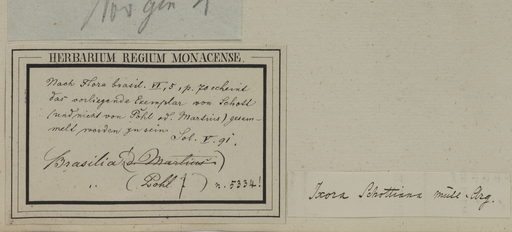 Nov gen
HERBARIUM REGIUM MONACENSE.
Nach Flora brasil. VI, 5, p. 70 scheint
das vorliegende Exemplar von Schott
(und nicht von Pohl od. Martius) gesam-
melt worden zu sein.
Sol. V. 91.
Brasilia (d. Martius)
" (Pohl ) n. 5334!
Ixora Schottiana müll. Arg.